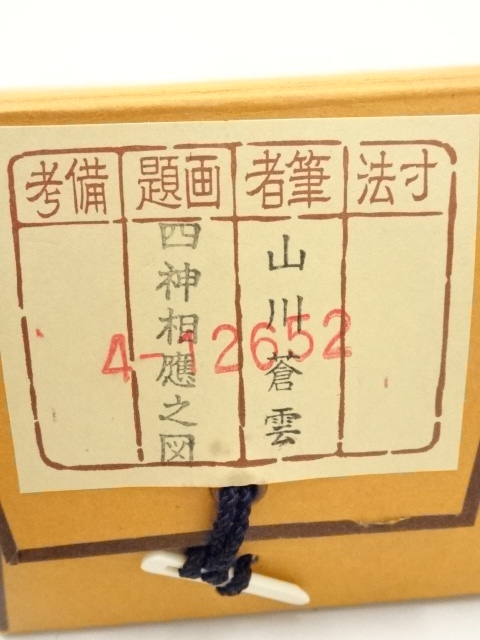 寸法
筆者
山川蒼雲
画題
四神相應之図
備考
4-12652